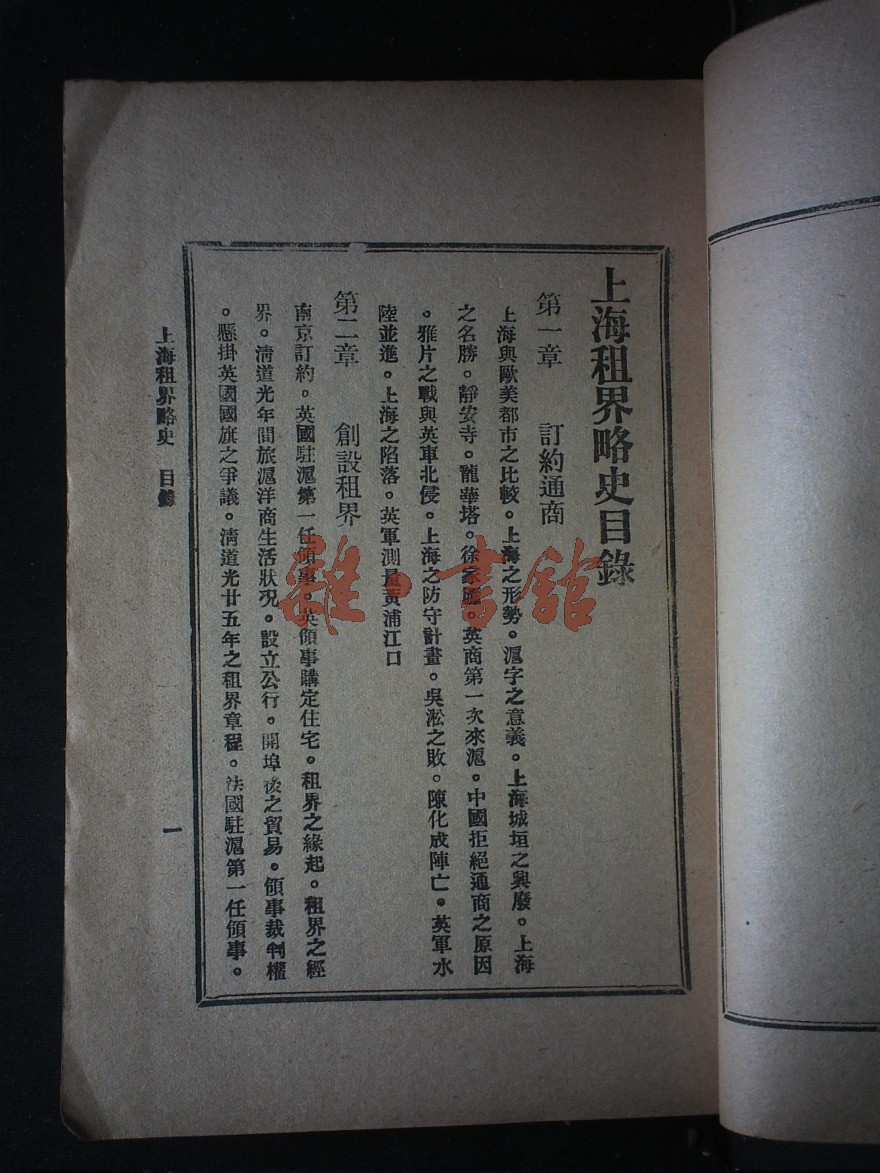 上海租界略史目錄
第一章 訂約通商
上海與歐美都市之比較。上海之形勢。滬字之意義。上海城垣之興廢。上海
之名勝。靜安寺。龍華塔。徐家匯。英商第一次來滬。中國拒絕通商之原因
。雅片之戰與英軍北侵。上海之防守計畫。吳淞之敗。陳化成陣亡。英軍水
陸並進。上海之陷落。英軍測量黃浦江口
第二章 創設租界
南京訂約。英國駐滬第一任領事。英領事購定住宅。租界之緣起。租界之經
界。清道光年間旅滬洋商生活狀況。設立公行。開埠後之貿易。領事裁判權
。懸掛英國國旗之爭議。清道光廿五年之租界章程。法國駐滬第一任領事。
上海租界略史 目錄
一
雜·書館